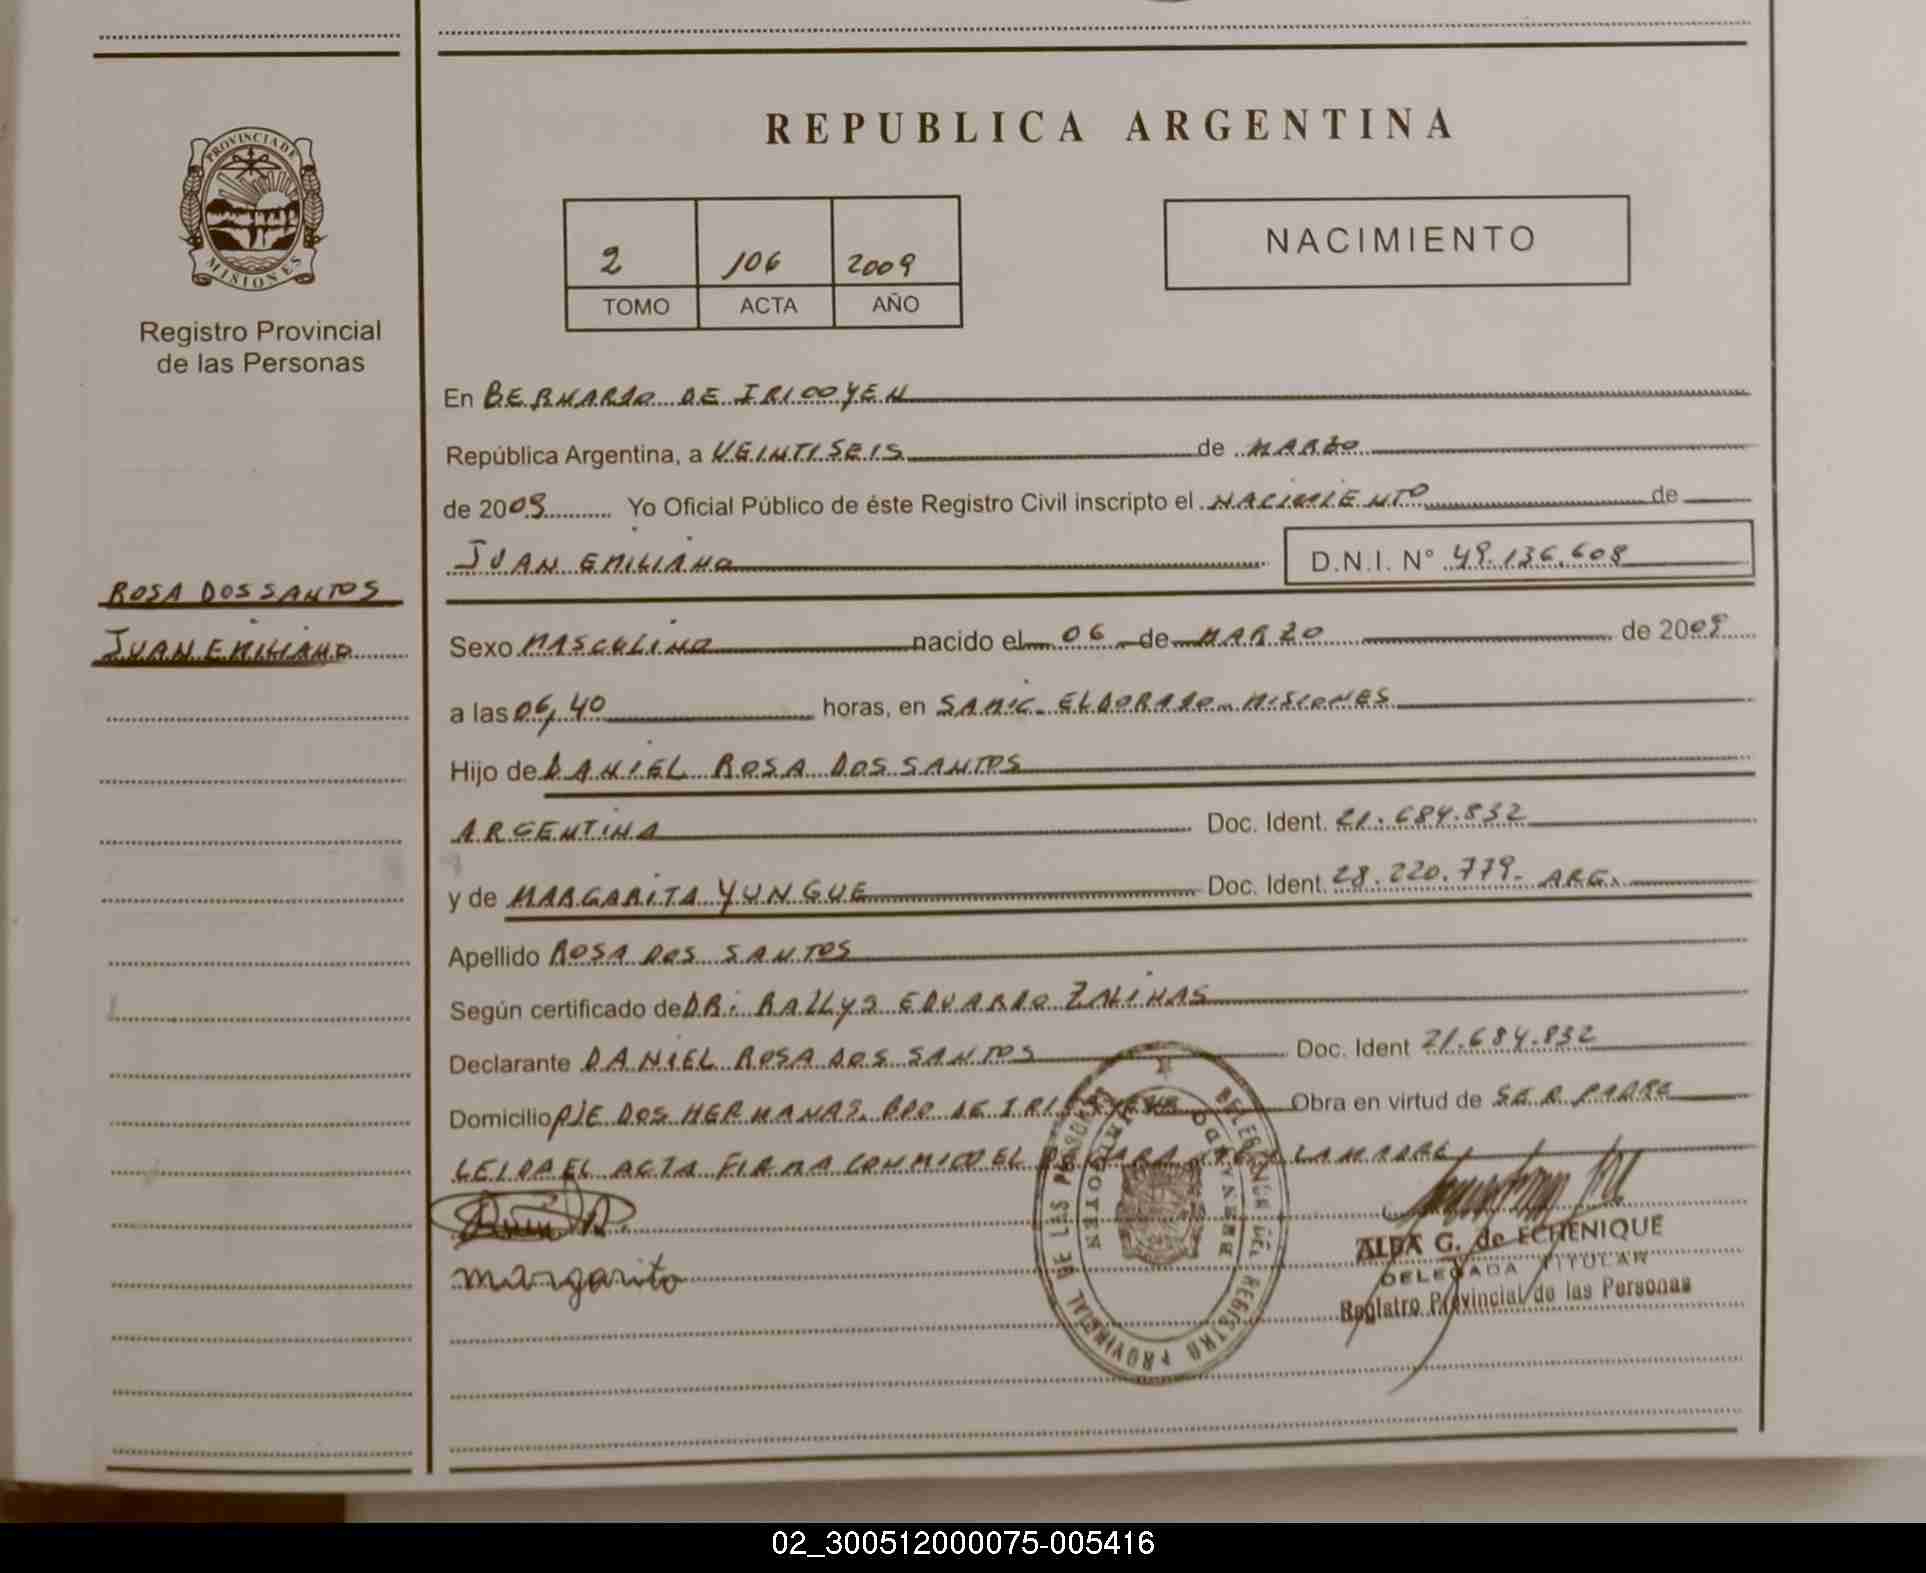 REPUBLICA ARGENTINA
PROVINCIA DE
MISIONES
Registro Provincial
de las Personas
2 106 2009
TOMO ACTA AÑO
NACIMIENTO
En BERNARDO DE IRIGOYEN
República Argentina, a VEINTISEIS de MARZO
de 2009 Yo Oficial Público de éste Registro Civil inscripto el NACIMIENTO de
JUAN EMILIANO D.N.I. N° 49.136.608
ROSA DOS SANTOS
JUAN EMILIANO
Sexo MASCULINO nacido el 06 de MARZO de 2009
a las 06,40 horas, en SAMIC. ELDORADO-MISIONES
Hijo de DANIEL ROSA DOS SANTOS
ARGENTINA Doc. Ident. 21.684.832
y de MARGARITA YUNGUE Doc. Ident. 28.220.779- ARG.
Apellido ROSA DOS SANTOS
Según certificado de DR. RALLYS EDUARDO ZALINAS
Declarante DANIEL ROSA DOS SANTOS Doc. Ident 21.684.832
Domicilio PJE DOS HERMANAS. BDO DE IRIGOYEN Obra en virtud de SER PADRE
LEIDA EL ACTA FIRMA CONMIGO EL DECLARANTE Y LA MADRE
margarita
DELEGACION DEL REGISTRO PROVINCIAL DE LAS PERSONAS
BERNARDO IRIGOYEN
ALBA G. de ECHENIQUE
DELEGADA TITULAR
Registro Provincial de las Personas
02_300512000075-005416